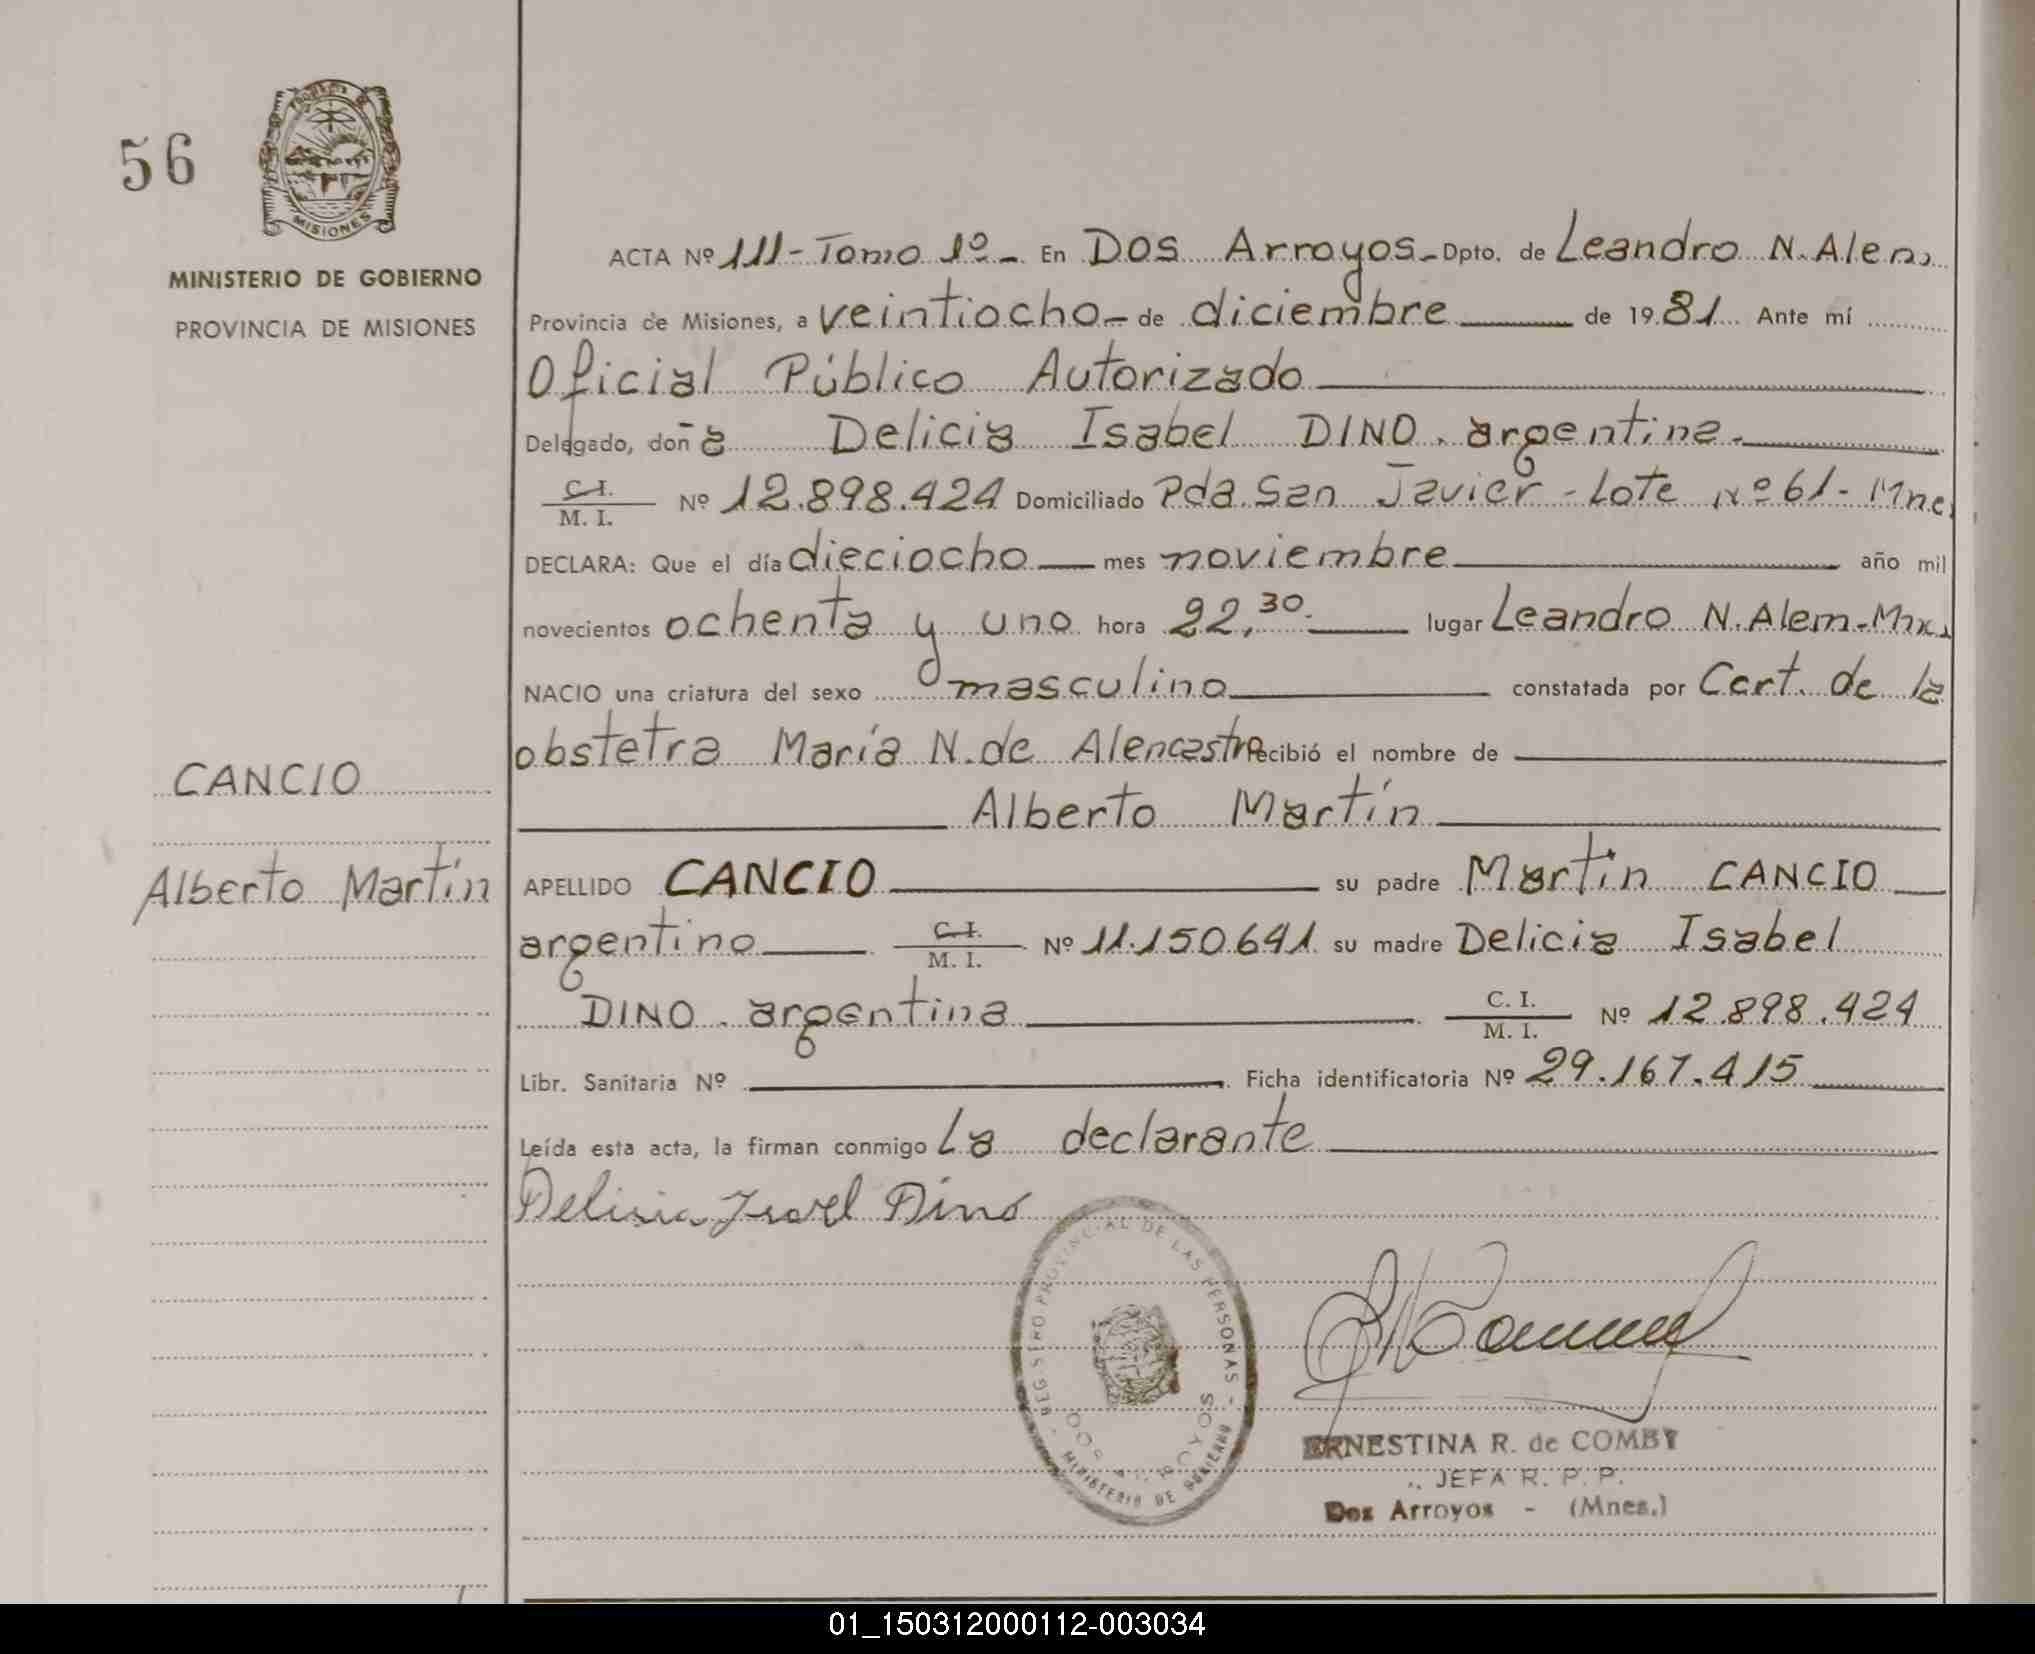 56
MISIONES
MINISTERIO DE GOBIERNO
PROVINCIA DE MISIONES
ACTA Nº 111 - Tomo 1º - En Dos Arroyos - Dpto. de Leandro N. Alem
Provincia de Misiones, a veintiocho - de diciembre de 1981 Ante mí
Oficial Público Autorizado
Delegado, doña Delicia Isabel DINO. argentina.
C. I. / M. I. Nº 12.898.424 Domiciliado Pda. San Javier - Lote Nº 61 - Mnes.
DECLARA: Que el día dieciocho mes noviembre año mil
novecientos ochenta y uno hora 22,30. lugar Leandro N. Alem - Mnes.
NACIO una criatura del sexo masculino constatada por Cert. de la
obstetra María N. de Alencastro recibió el nombre de
Alberto Martín
APELLIDO CANCIO su padre Martín CANCIO
argentino C. I. / M. I. Nº 11.150.641 su madre Delicia Isabel
DINO. argentina C. I. / M. I. Nº 12.898.424
Libr. Sanitaria Nº Ficha identificatoria Nº 29.167.415
Leída esta acta, la firman conmigo La declarante
CANCIO
Alberto Martín
Delicia Isabel Dino
REGISTRO PROVINCIAL DE LAS PERSONAS -
DOS ARROYOS
MINISTERIO DE GOBIERNO
ERNESTINA R. de COMBY
JEFA R. P. P.
Dos Arroyos - (Mnes.)
01_150312000112-003034